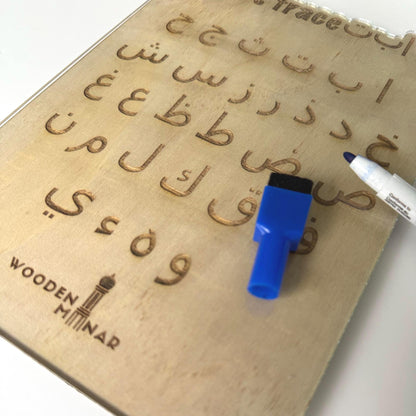 Trace
ا ب ت ث ج ح
خ د ذ ر ز س ش
ص ض ط ظ ع غ
ف ق ك ل م ن
و ه ء ي
WOODEN
MINAR